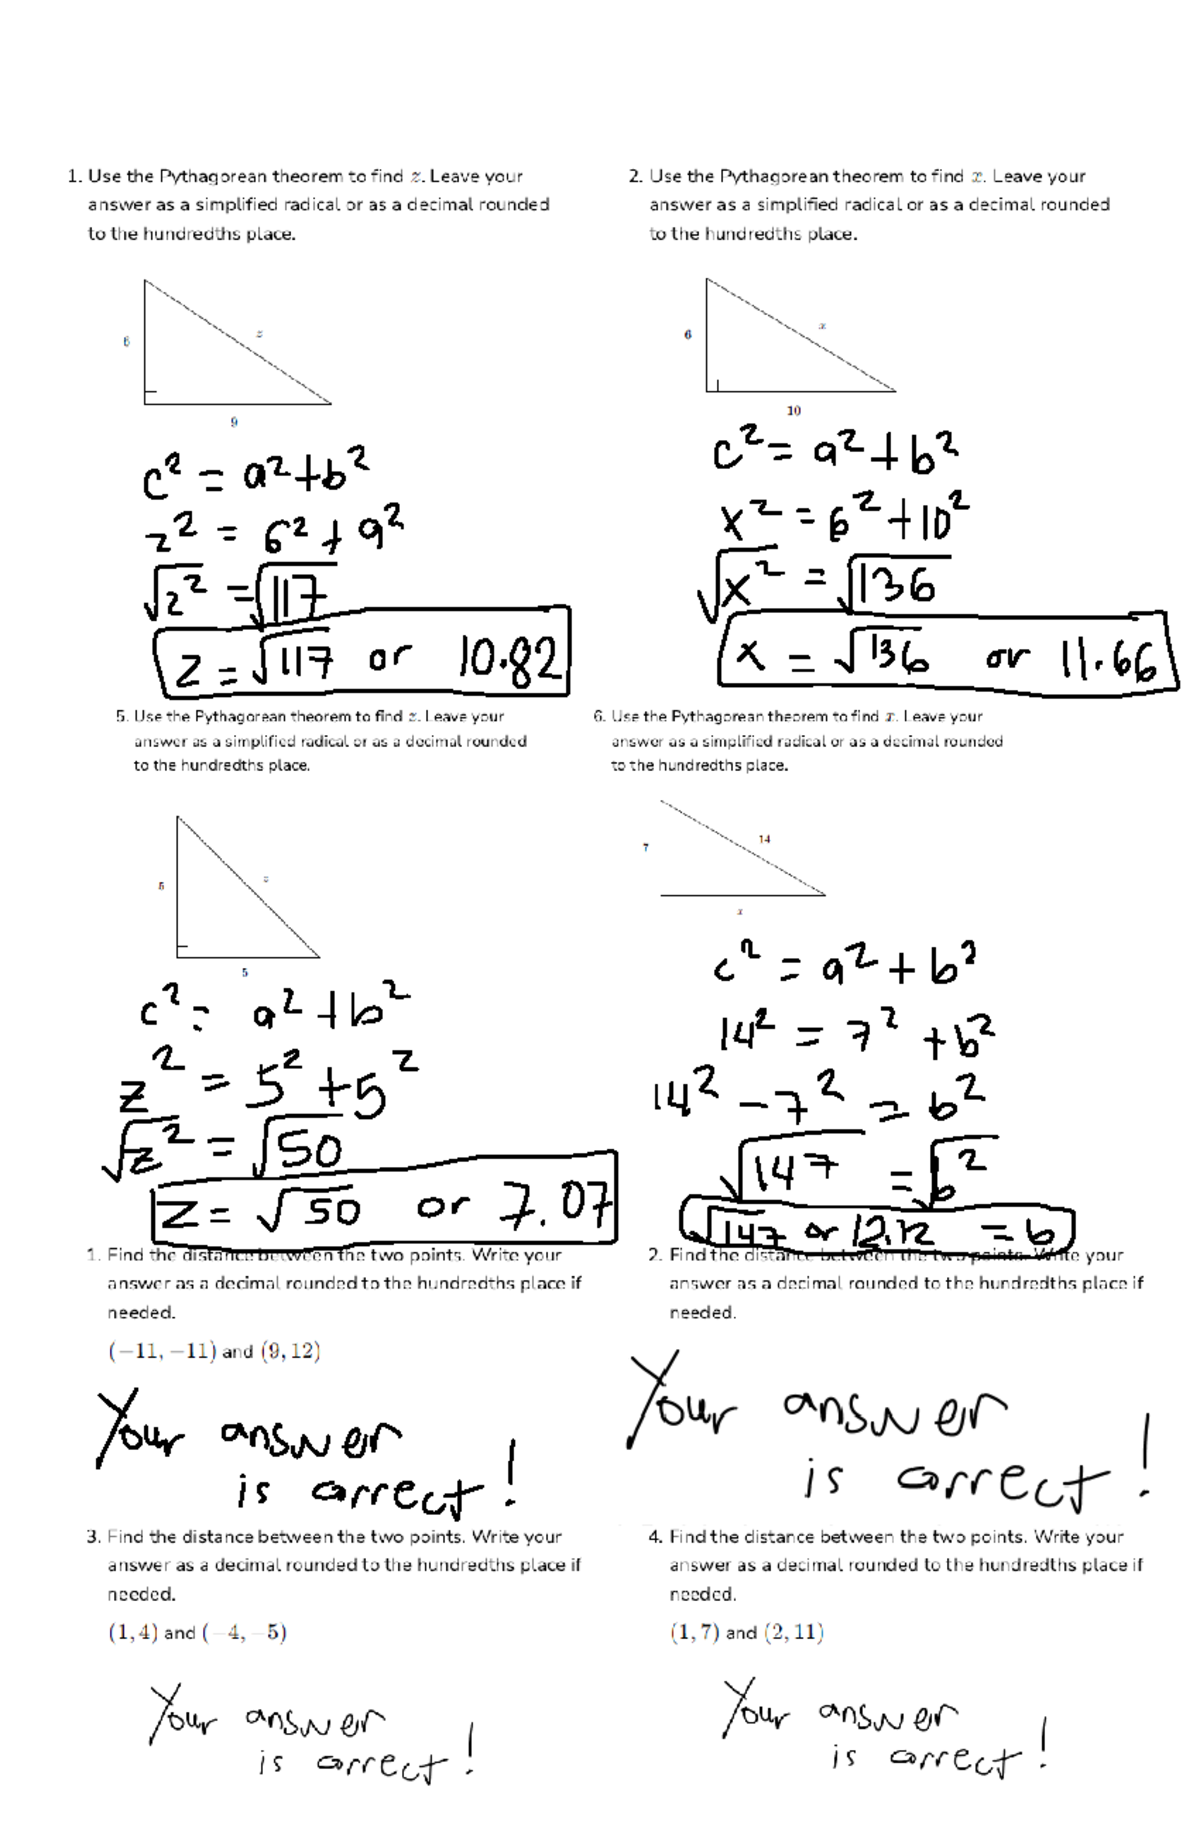 1. Use the Pythagorean theorem to find z. Leave your
answer as a simplified radical or as a decimal rounded
to the hundredths place.
6
z
9
c² = a²+b²
z² = 6² + 9²
√z² = √117
z = √117 or 10.82
2. Use the Pythagorean theorem to find x. Leave your
answer as a simplified radical or as a decimal rounded
to the hundredths place.
6
x
10
c² = a² + b²
x² = 6² + 10²
√x² = √136
x = √136 or 11.66
5. Use the Pythagorean theorem to find z. Leave your
answer as a simplified radical or as a decimal rounded
to the hundredths place.
5
z
5
c² = a² + b²
z² = 5² + 5²
√z² = √50
z = √50 or 7.07
6. Use the Pythagorean theorem to find x. Leave your
answer as a simplified radical or as a decimal rounded
to the hundredths place.
7
14
x
c² = a² + b²
14² = 7² + b²
14² - 7² = b²
√147 = √b²
√147 or 12.12 = b
1. Find the distance between the two points. Write your
answer as a decimal rounded to the hundredths place if
needed.
(−11, −11) and (9, 12)
Your answer
is correct!
2. Find the distance between the two points. Write your
answer as a decimal rounded to the hundredths place if
needed.
Your answer
is correct!
3. Find the distance between the two points. Write your
answer as a decimal rounded to the hundredths place if
needed.
(1, 4) and (−4, −5)
Your answer
is correct!
4. Find the distance between the two points. Write your
answer as a decimal rounded to the hundredths place if
needed.
(1, 7) and (2, 11)
Your answer
is correct!